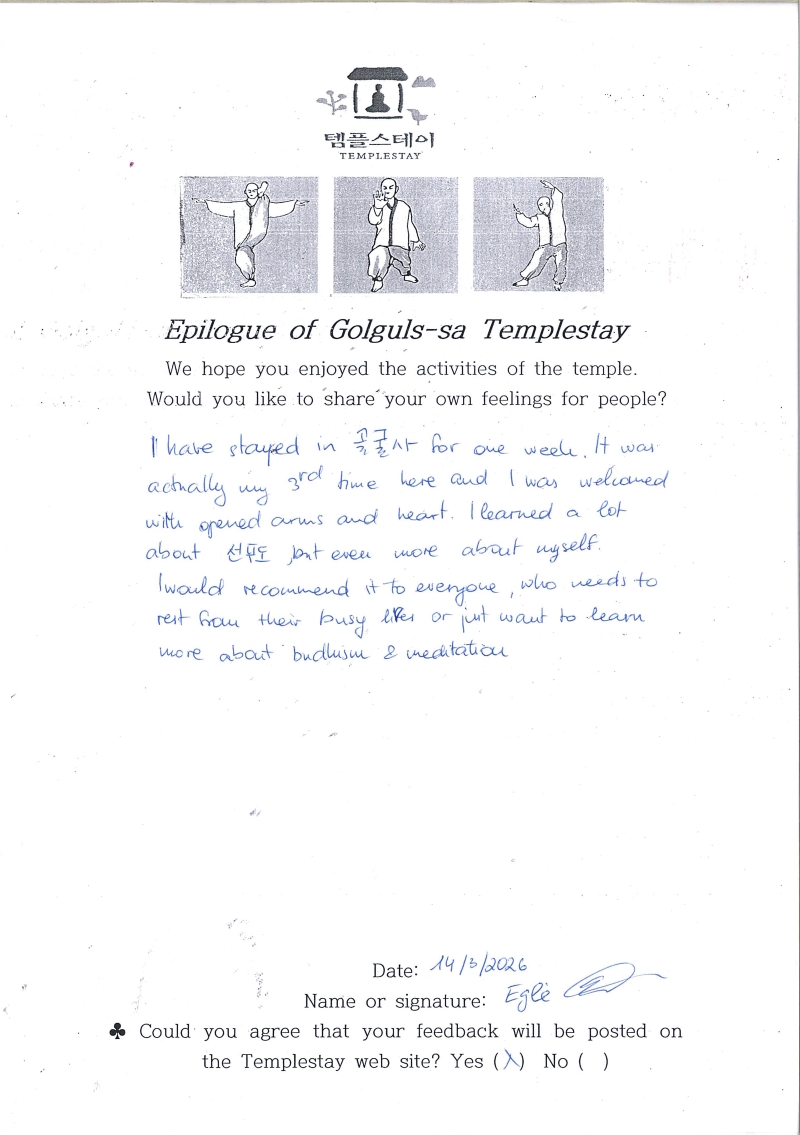 템플스테이
TEMPLESTAY
Epilogue of Golguls-sa Templestay
We hope you enjoyed the activities of the temple.
Would you like to share your own feelings for people?
I have stayed in 골굴사 for one week. It was
actually my 3rd time here and I was welcomed
with opened arms and heart. I learned a lot
about 선무도 but even more about myself.
I would recommend it to everyone, who needs to
rest from their busy lifes or just want to learn
more about budhism & meditation
Date: 14/3/2026
Name or signature: Eglė
♣ Could you agree that your feedback will be posted on
the Templestay web site? Yes (X) No ( )